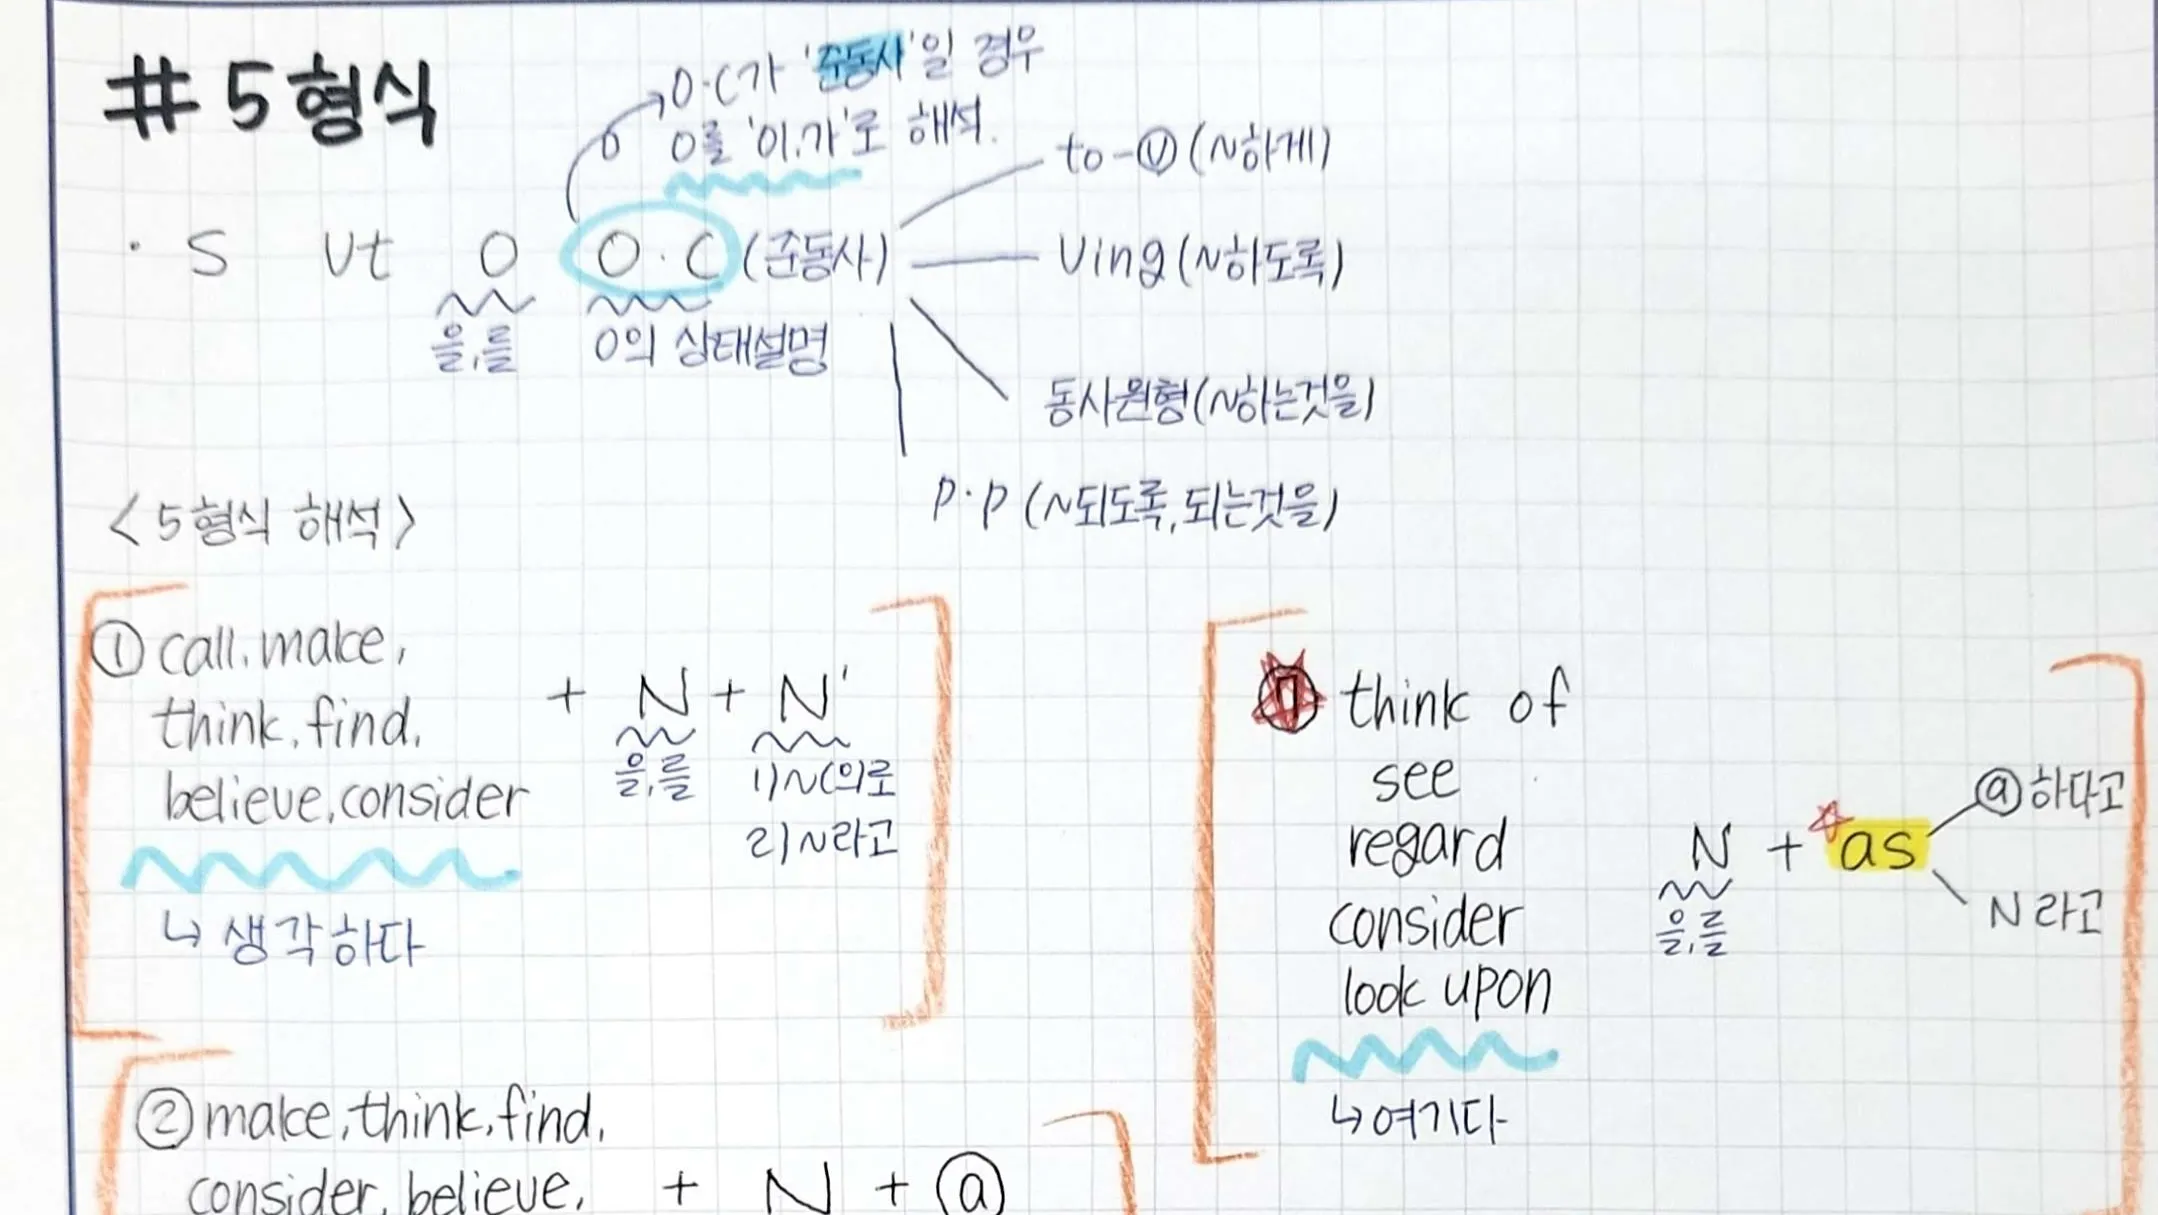 # 5형식
O·C가 '준동사'일 경우
O를 '이.가'로 해석.
· S Vt O O·C (준동사)
을,를
O의 상태설명
to-ⓥ (~하게)
Ving (~하도록)
동사원형 (~하는것을)
p·p (~되도록, 되는것을)
<5형식 해석>
① call, make,
think, find,
believe, consider
↳ 생각하다
+ N + N'
을,를
1) ~(으)로
2) ~라고
② make, think, find,
consider, believe,
+ N + ⓐ
⑦ think of
see
regard
consider
look upon
↳ 여기다
N + as
을,를
ⓐ 하다고
N 라고